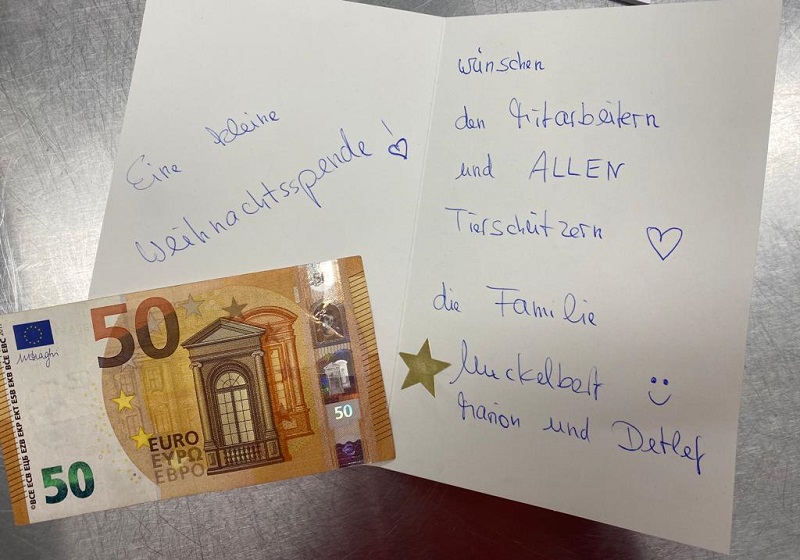 Eine kleine
Weihnachtsspende!
wünschen
den Mitarbeitern
und ALLEN
Tierschützern
die Familie
Muckelbert
Marion und Detlef
50
EURO
ΕΥΡΩ
ЕВРО
50
50
©BCE ECB ЕЦБ EZB EKP EKT ESB EKB BĊE EBC